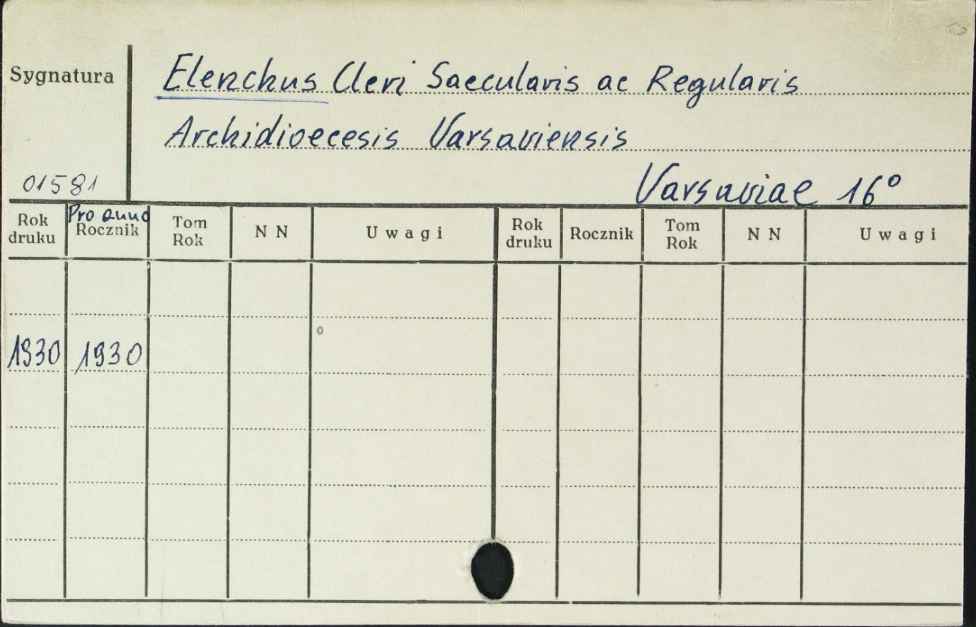 Sygnatura
Elenchus Cleri Saecularis ac Regularis
Archidioecesis Varsaviensis
01581
Varsaviae 16°
Rok druku
Pro anno
Rocznik
Tom Rok
N N
Uwagi
Rok druku
Rocznik
Tom Rok
N N
Uwagi
1930 1930